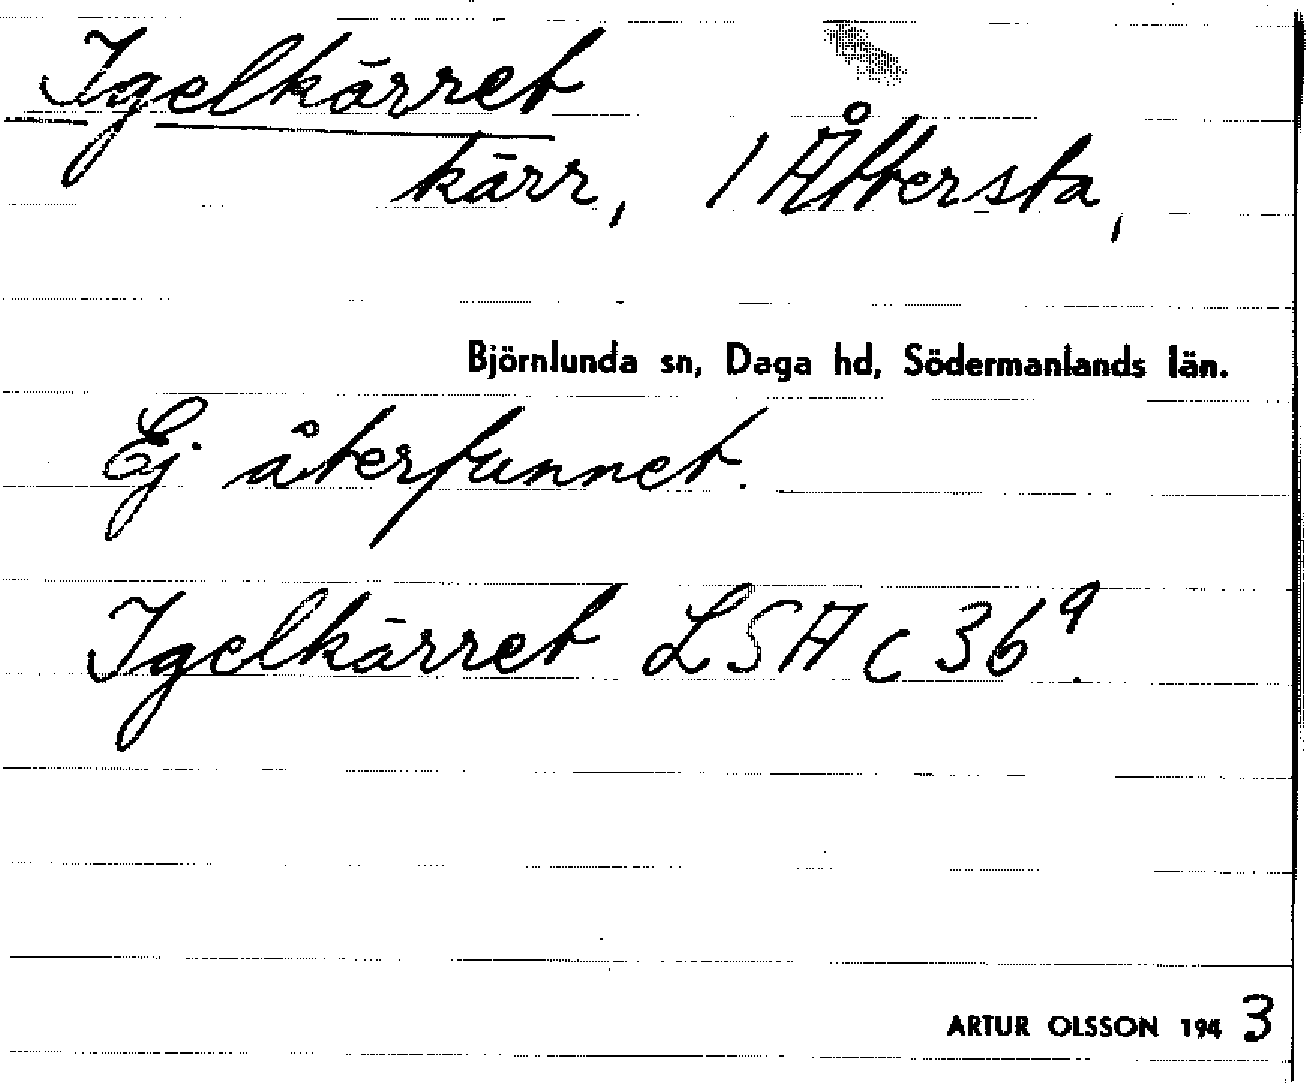 Igelkärret
kärr, 1 Åttersta,
Björnlunda sn, Daga hd, Södermanlands län.
Ej återfunnet.
Igelkärret LSA c 36⁹.
ARTUR OLSSON 1943